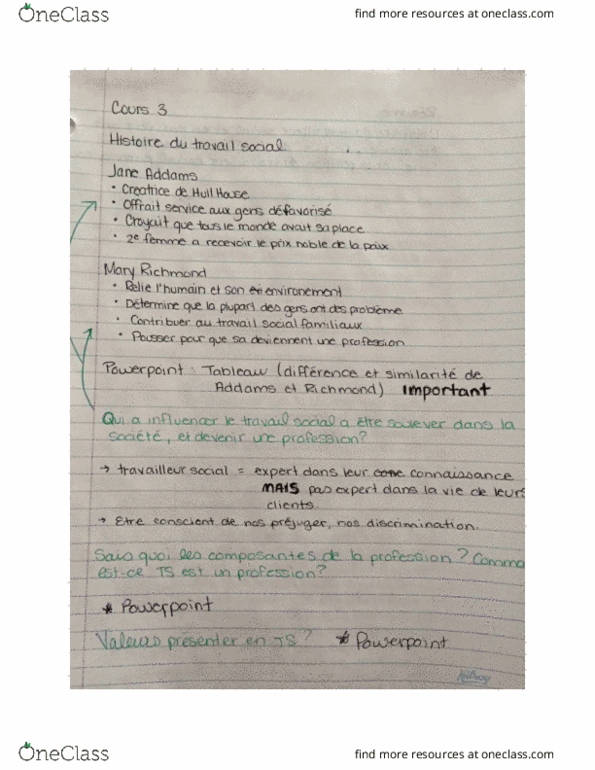 OneClass
find more resources at oneclass.com
Cours 3
Histoire du travail social
Jane Addams
• Creatrice de Hull House
• Offrait service aux gens défavorisé
• Croyait que tous le monde avait sa place
• 2e femme a recevoir le prix noble de la paix
Mary Richmond
• Relie l'humain et son environement
• Détermine que la plupart des gens ont des problème
• Contribuer au travail social familiaux
• Pousser pour que sa deviennent une profession
Powerpoint : Tableau (différence et similarité de
Addams et Richmond) Important
Qui a influencer le travail social a être soulever dans la
société, et devenir une profession?
→ travailleur social = expert dans leur connaissance
MAIS pas expert dans la vie de leurs
clients
→ Etre conscient de nos préjuger, nos discrimination.
Sais quoi les composantes de la profession? Comme
est-ce TS est un profession?
* Powerpoint
Valeurs présenter en TS? * Powerpoint
OneClass
find more resources at oneclass.com